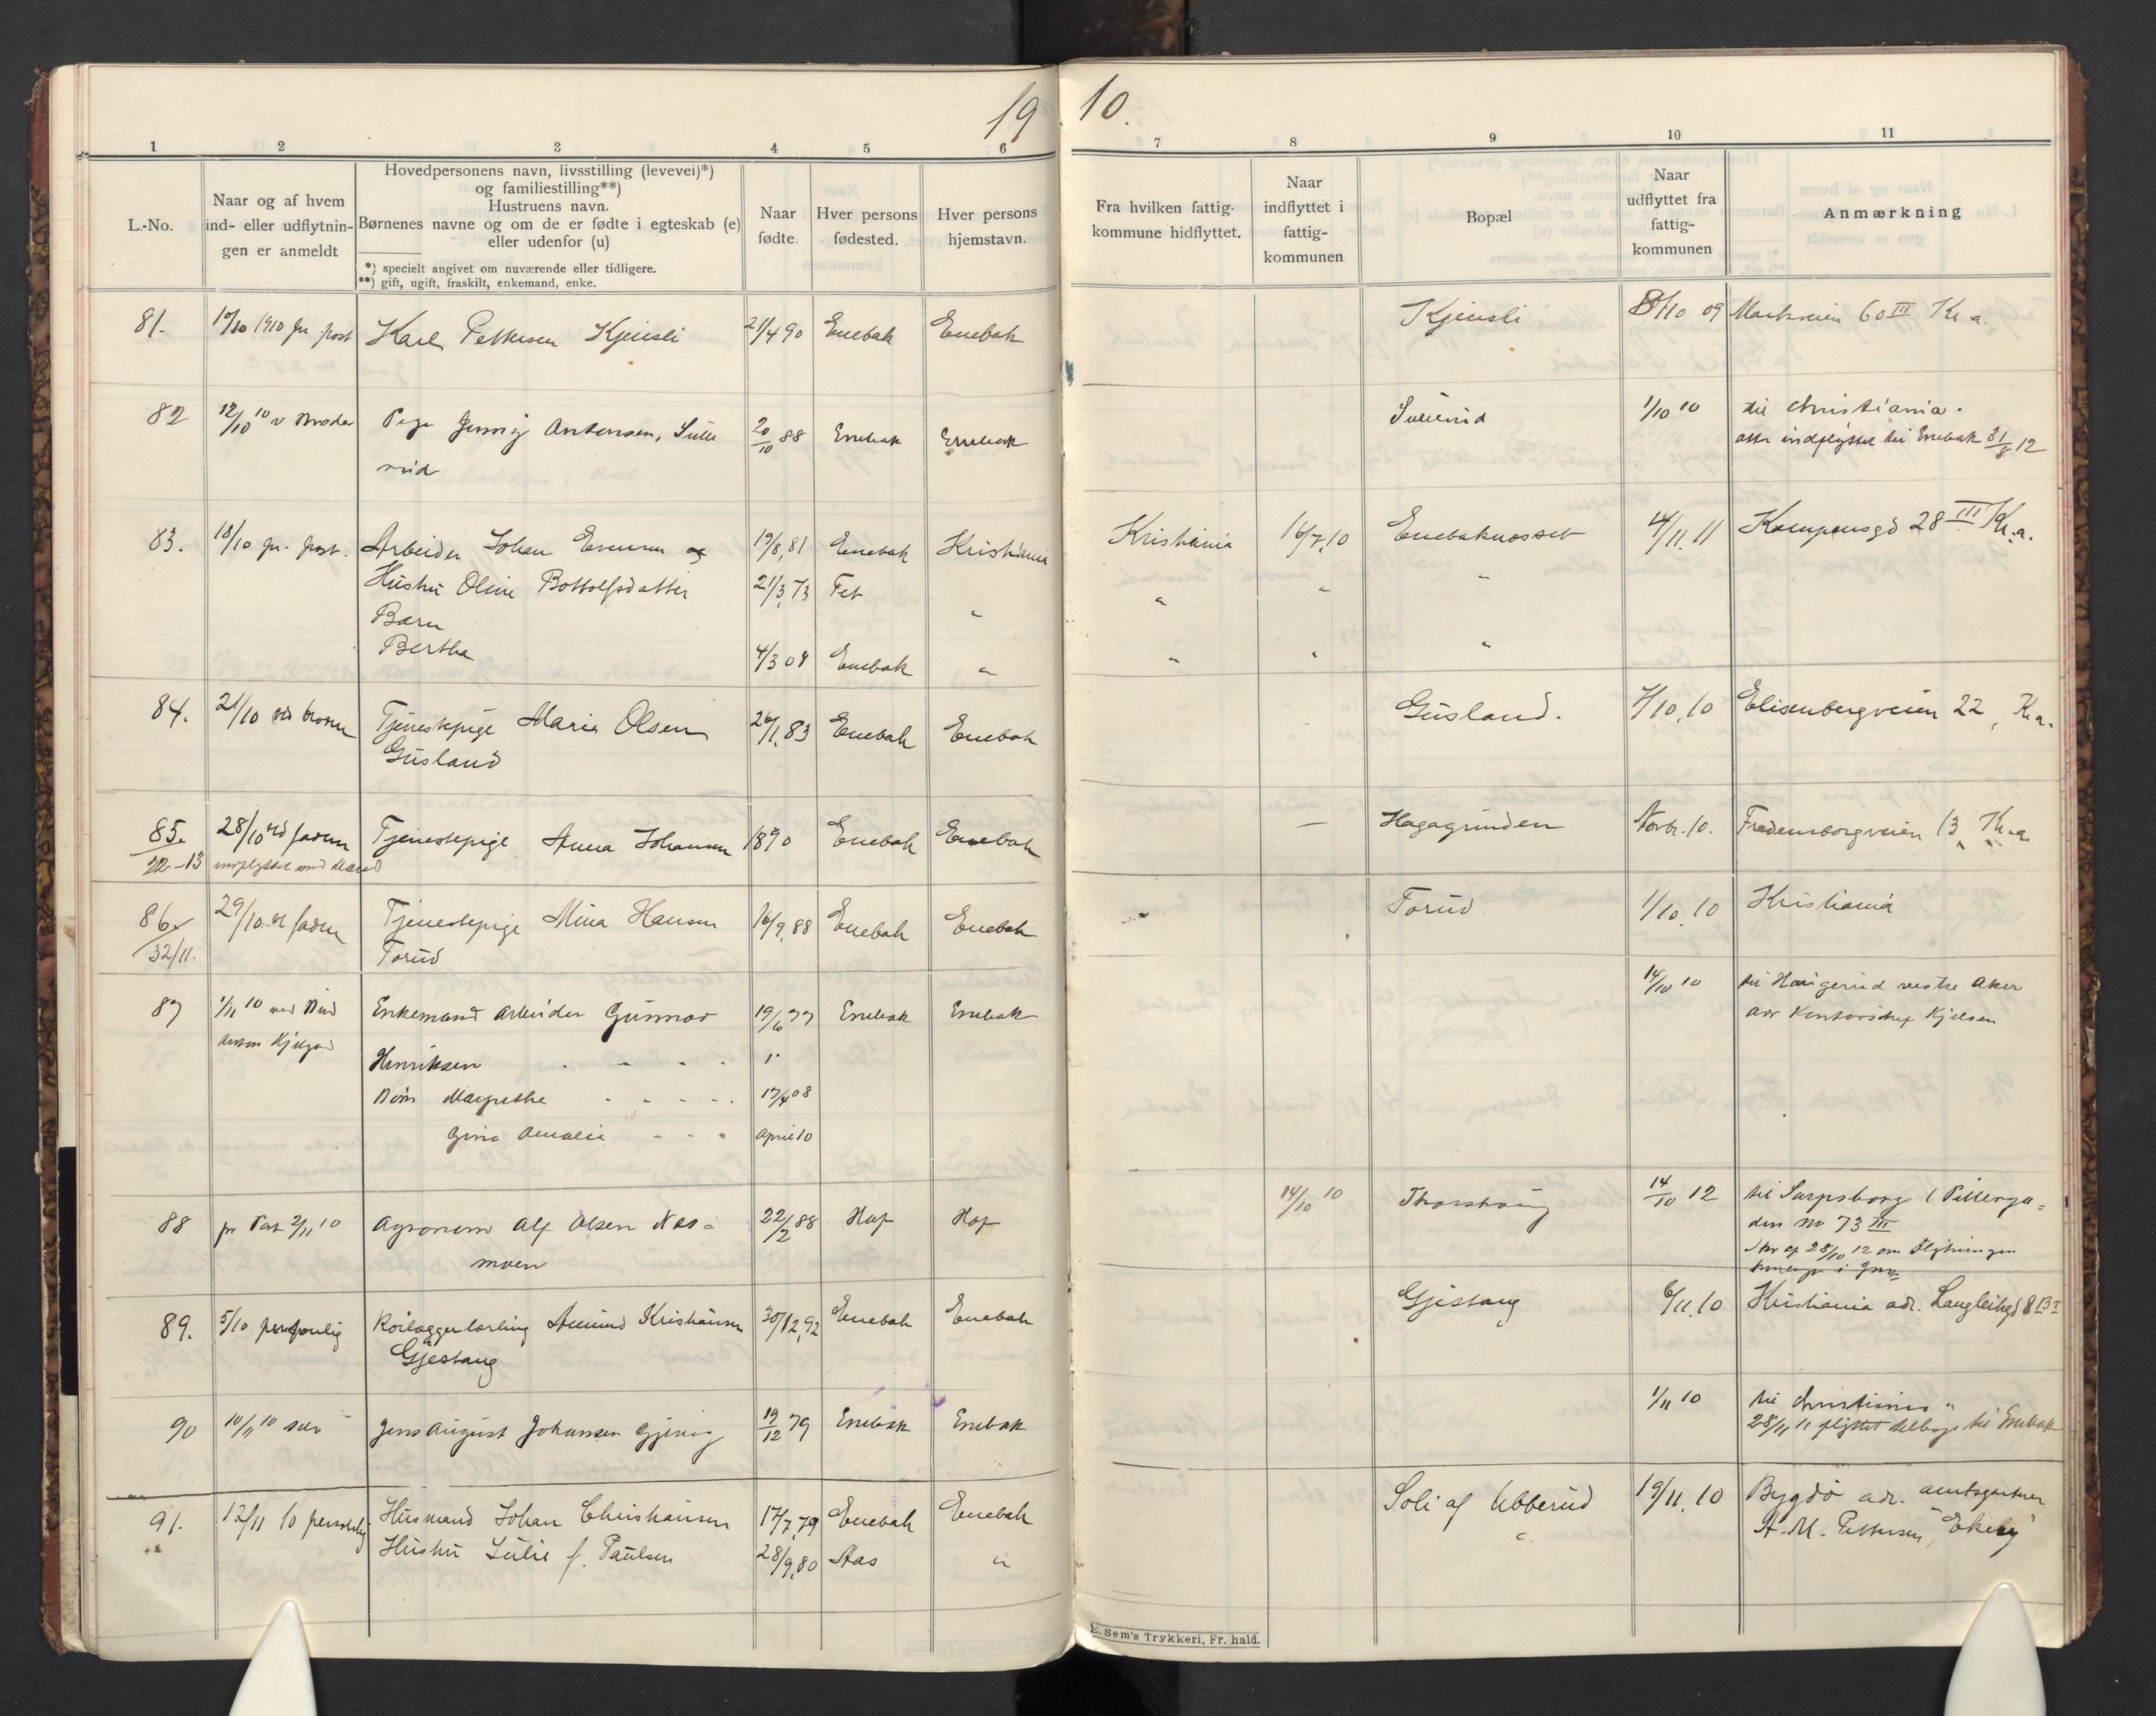 19 10.
1 2 3 4 5 6 7 8 9 10 11
L.-No.
Naar og af hvem
ind- eller udflytnin-
gen er anmeldt
Hovedpersonens navn, livsstilling (levevei)*)
og familiestilling**)
Hustruens navn.
Børnenes navne og om de er fødte i egteskab (e)
eller udenfor (u)
*) specielt angivet om nuværende eller tidligere.
**) gift, ugift, fraskilt, enkemand, enke.
Naar
fødte.
Hver persons
fødested.
Hver persons
hjemstavn.
Fra hvilken fattig-
kommune hidflyttet.
Naar
indflyttet i
fattig-
kommunen
Bopæl
Naar
udflyttet fra
fattig-
kommunen
Anmærkning
81. 10/10 1910 pr post Karl Pettersen Kjensli 21/4 90 Enebak Enebak Kjensli 8/10 09 Markveien 60 III Kr.a.
82 12/10 10 v Moder Pige Jenny Antonsen, Sulle 20/10 88 Enebak Enebak Sullerud 1/10 10 til Christiania.
rud atter indflyttet til Enebak 31/8 12
83. 18/10 pr. post. Arbeider Johan Evensen og 19/8,81 Enebak Kristiania Kristiania 16/7.10 Enebaknesset 14/11.11 Kampensgd 28 III Kr.a.
Hustru Oline Bottolfsdatter 21/3,73 Fet " " " "
Barn
Bertha 4/3 04 Enebak " " " "
84. 21/10 ved broren Tjenestepige Marie Olsen 26/1,83 Enebak Enebak Gusland. 7/10.10 Elisenbergveien 22, Kr.a.
Gusland
85. 28/10 ved faderen Tjenestepige Anna Johansen 1890 Enebak Enebak — Hagagrunden Novbr. 10. Fredensborgveien 13, Kr.a
22-13 indflyttet med Mand
86. 29/10 ved faderen Tjenestepige Mina Hansen 16/9,88 Enebak Enebak Torud 1/10.10 Kristiania
32/11. Torud
87 1/11 10 ved Enkemand Arbeider Gunnar 19/6 77 Enebak Enebak 14/10 10 til Haugerud vestre Aker
Anton Henriksen adr Kontorchef Kjelsen
Børn Margrethe 17/4 08
Gina Amalie April 10
88 pr Post 2/11 10 Agronom Alf Olsen Næs= 22/2 88 Hof Hof 14/10 10 Thorshaug 14/10 12 til Sarpsborg (Pillerga=
moen den no 73 III
Skr af 28/10 12 om flytningen
89. 5/10 personlig Rørlæggerlærling Amund Kristiansen 30/12,92 Enebak Enebak Gjestang 6/11.10 Kristiania adr. Langleiksgd 8
Gjestang
90 10/11 10 selv Jens August Johansen 19/12 79 Enebak Enebak 1/11 10 til Christiania
28/11 11 flyttet tilbage til Enebak
91. 12/11 10 personlig Husmand Johan Christiansen 17/7,79 Enebak Enebak Soli af Ubberud 19/11.10 Bygdø adr. amtsgartner
Hustru Julie f. Paulsen 28/9,80 Aas " " A. M. Pettersen, "Ekely"
E. Sem's Trykkeri, Fr. hald.